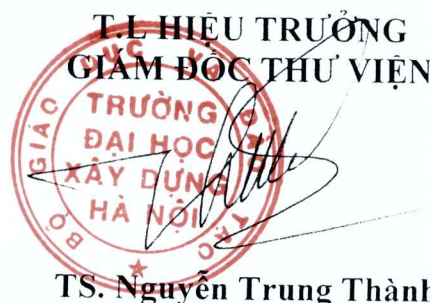 T.L HIỆU TRƯỞNG
GIÁM ĐỐC THƯ VIỆN
BỘ GIÁO DỤC VÀ ĐÀO TẠO
TRƯỜNG
ĐẠI HỌC
XÂY DỰNG
HÀ NỘI
TS. Nguyễn Trung Thành